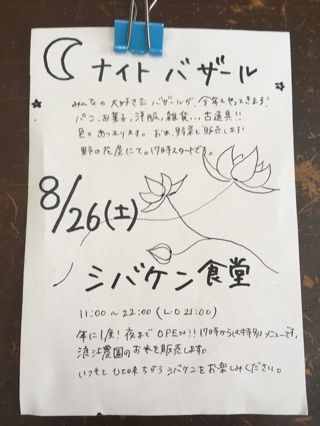 ナイトバザール
みんなの大好きなバザールが、今年もやってきます!
パン、お菓子、洋服、雑貨、、、古道具!!
色々あつまります。お米、野菜も販売します!
野の花屋にて。17時スタートです。
8/26(土)
シバケン食堂
11:00〜22:00(L.O 21:00)
年に1度!夜までOPEN!!17時から(は特別)メニューです。
浪江農園のお米を販売します。
いつもとひと味ちがうシバケンをお楽しみください。